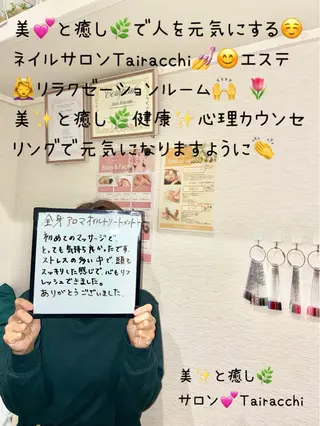 美💕と癒し🌿で人を元気にする☺️
ネイルサロンTairacchi💅😊エステ
💆リラクゼーションルーム🙌 🌷
美✨と癒し🌿健康✨心理カウンセ
リングで元気になりますように👏
全身アロマオイルトリートメント
初めてのマッサージで、
とっても気持ち良かったです。
ストレスの多い中で、頭も
スッキリした感じで、心もリフ
レッシュできました。
ありがとうございました。
美✨と癒し🌿
サロン💕Tairacchi